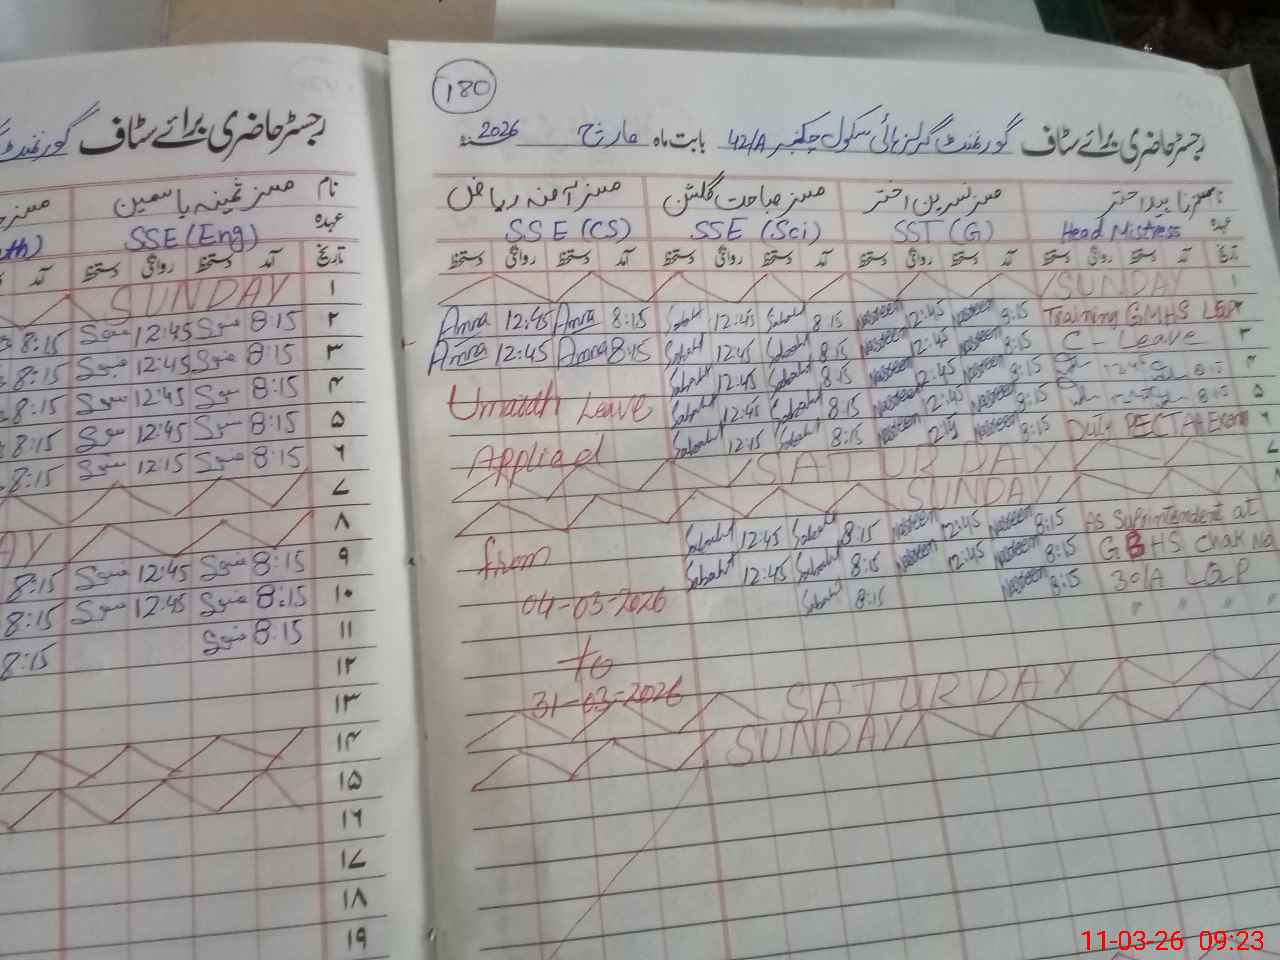 180
رجسٹر حاضری برائے سٹاف گورنمنٹ گرلز ہائی سکول چکنمبر 42/A بابت ماہ مارچ 2026
نام مسز ناہید اختر مسز نسرین اختر مسز صباحت گلشن مسز آمنہ ریاض
عہدہ Head Mistress SST (G) SSE (Sci) SSE (CS)
تاریخ آمد دستخط روانگی دستخط آمد دستخط روانگی دستخط آمد دستخط روانگی دستخط آمد دستخط روانگی دستخط
۱ SUNDAY
۲ Training GMHS Nasreen 8:15 Nasreen 12:45 Sabahat 8:15 Sabahat 12:45 Amna 8:15 Amna 12:45
۳ C-Leave Nasreen 8:15 Nasreen 12:45 Sabahat 8:15 Sabahat 12:45 Amna 8:15 Amna 12:45
۴ 8:15 12:45 Nasreen 8:15 Nasreen 12:45 Sabahat 8:15 Sabahat 12:45
Umarah Leave
۵ 8:15 Nasreen 8:15 Nasreen 12:45 Sabahat 8:15 Sabahat 12:45
۶ Duty PECTAA Exam Nasreen 8:15 Nasreen 12:15 Sabahat 8:15 Sabahat 12:15
Appliad
۷ SATURDAY
۸ SUNDAY
As Suprintendent at Nasreen 8:15 Nasreen 12:45 Sabahat 8:15 Sabahat 12:45
from
GBHS Chak No Nasreen 8:15 Nasreen 12:45 Sabahat 8:15 Sabahat 12:45
30/A LQP Nasreen 8:15 Sabahat 8:15
04-03-2026
" " " "
to
31-03-2026
SATURDAY
SUNDAY
رجسٹر حاضری برائے سٹاف گورنمنٹ
نام مسز ثمینہ یاسمین مسز
عہدہ SSE (Eng) th)
تاریخ آمد دستخط روانگی دستخط آمد
۱ SUNDAY
۲ 8:15 12:45 8:15
۳ 8:15 12:45 8:15
۴ 8:15 12:45 8:15
۵ 8:15 12:45 8:15
۶ 8:15 12:15 8:15
۷
۸ AY
۹ 8:15 12:45 8:15
۱۰ 8:15 12:45 8:15
۱۱ 8:15 8:15
۱۲
۱۳
۱۴
۱۵
۱۶
۱۷
۱۸
۱۹
11-03-26 09:23